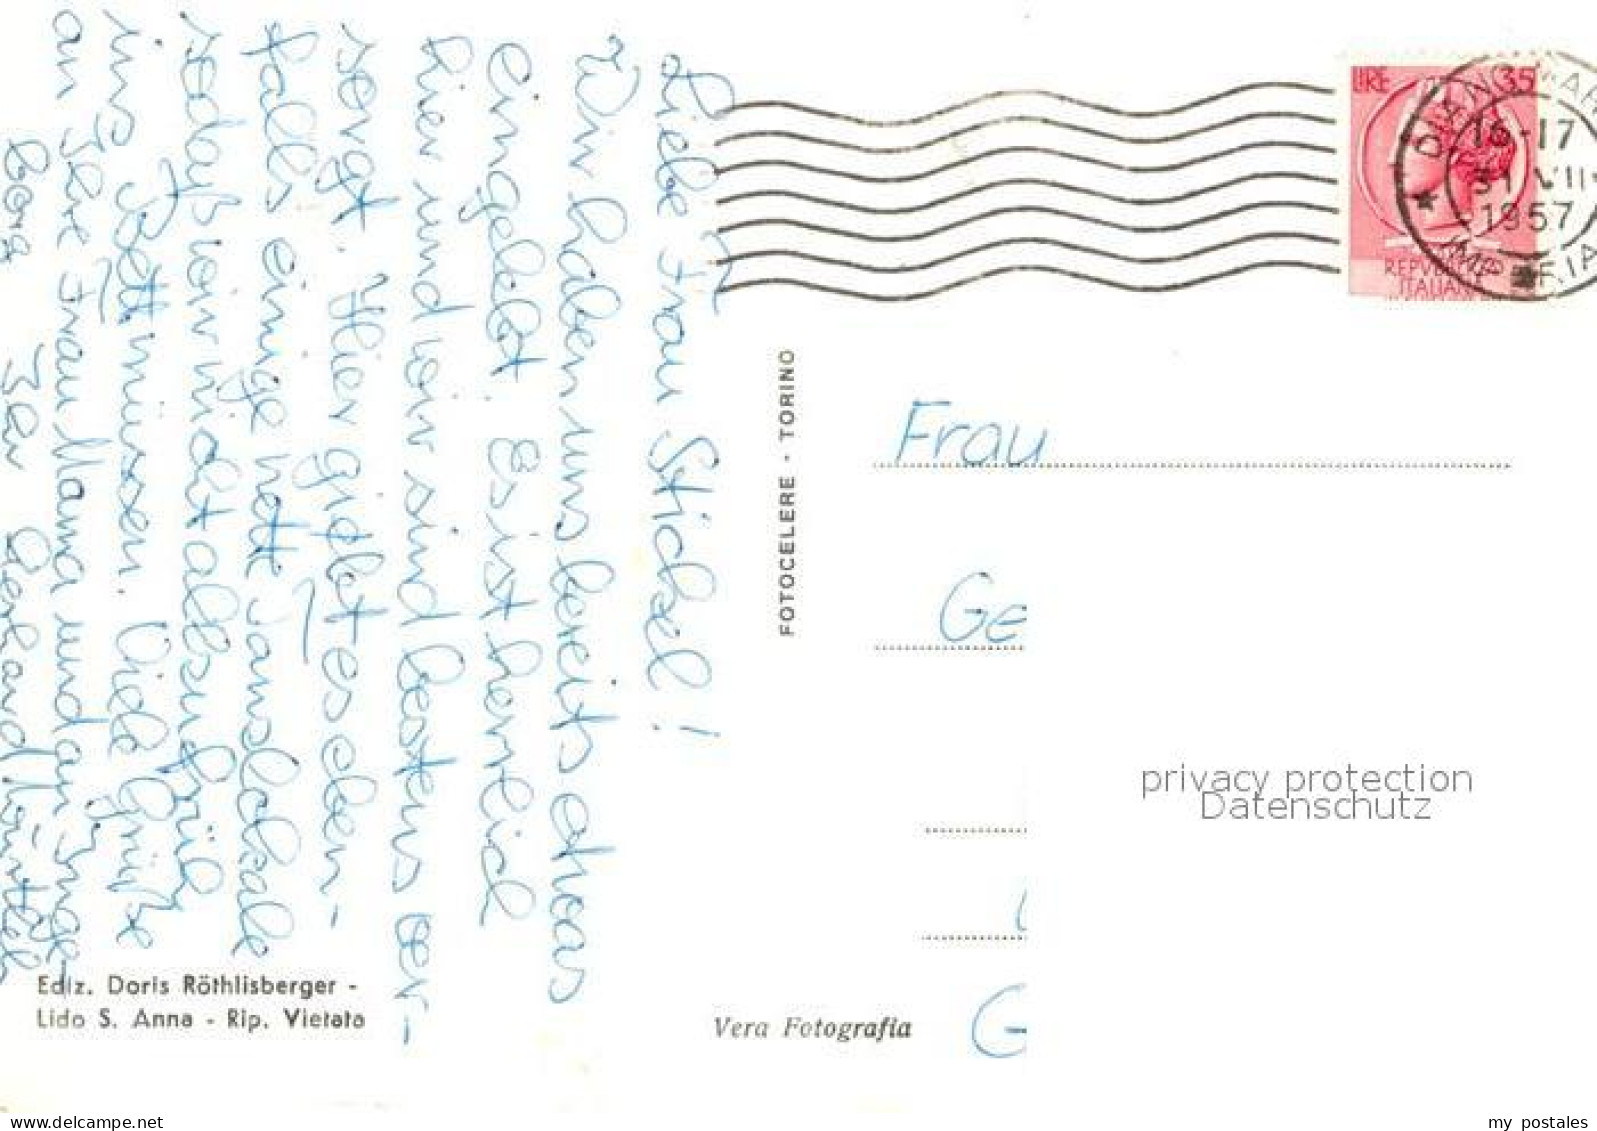 Liebe Frau Stickel!
Wir haben uns bereits etwas
eingelebt. Es ist herrlich
hier und wir sind bestens ver-
sorgt. Hier giebt es eben-
falls einige nette Tanzlokale
sodaß wir nicht allzufrüh
ins Bett müssen. Viele Grüße
an Ihre Frau Mama und an Inge
Ihr Gerhard
Ediz. Doris Röthlisberger -
Lido S. Anna - Rip. Vietata
FOTOCELERE - TORINO
Vera Fotografia
LIRE 35
REPVBBLICA
ITALIANA
DIANO MAR
16-17
31 VII
1957
IMPERIA
Frau
Ge
G
privacy protection
Datenschutz
delcampe.net
my_postales